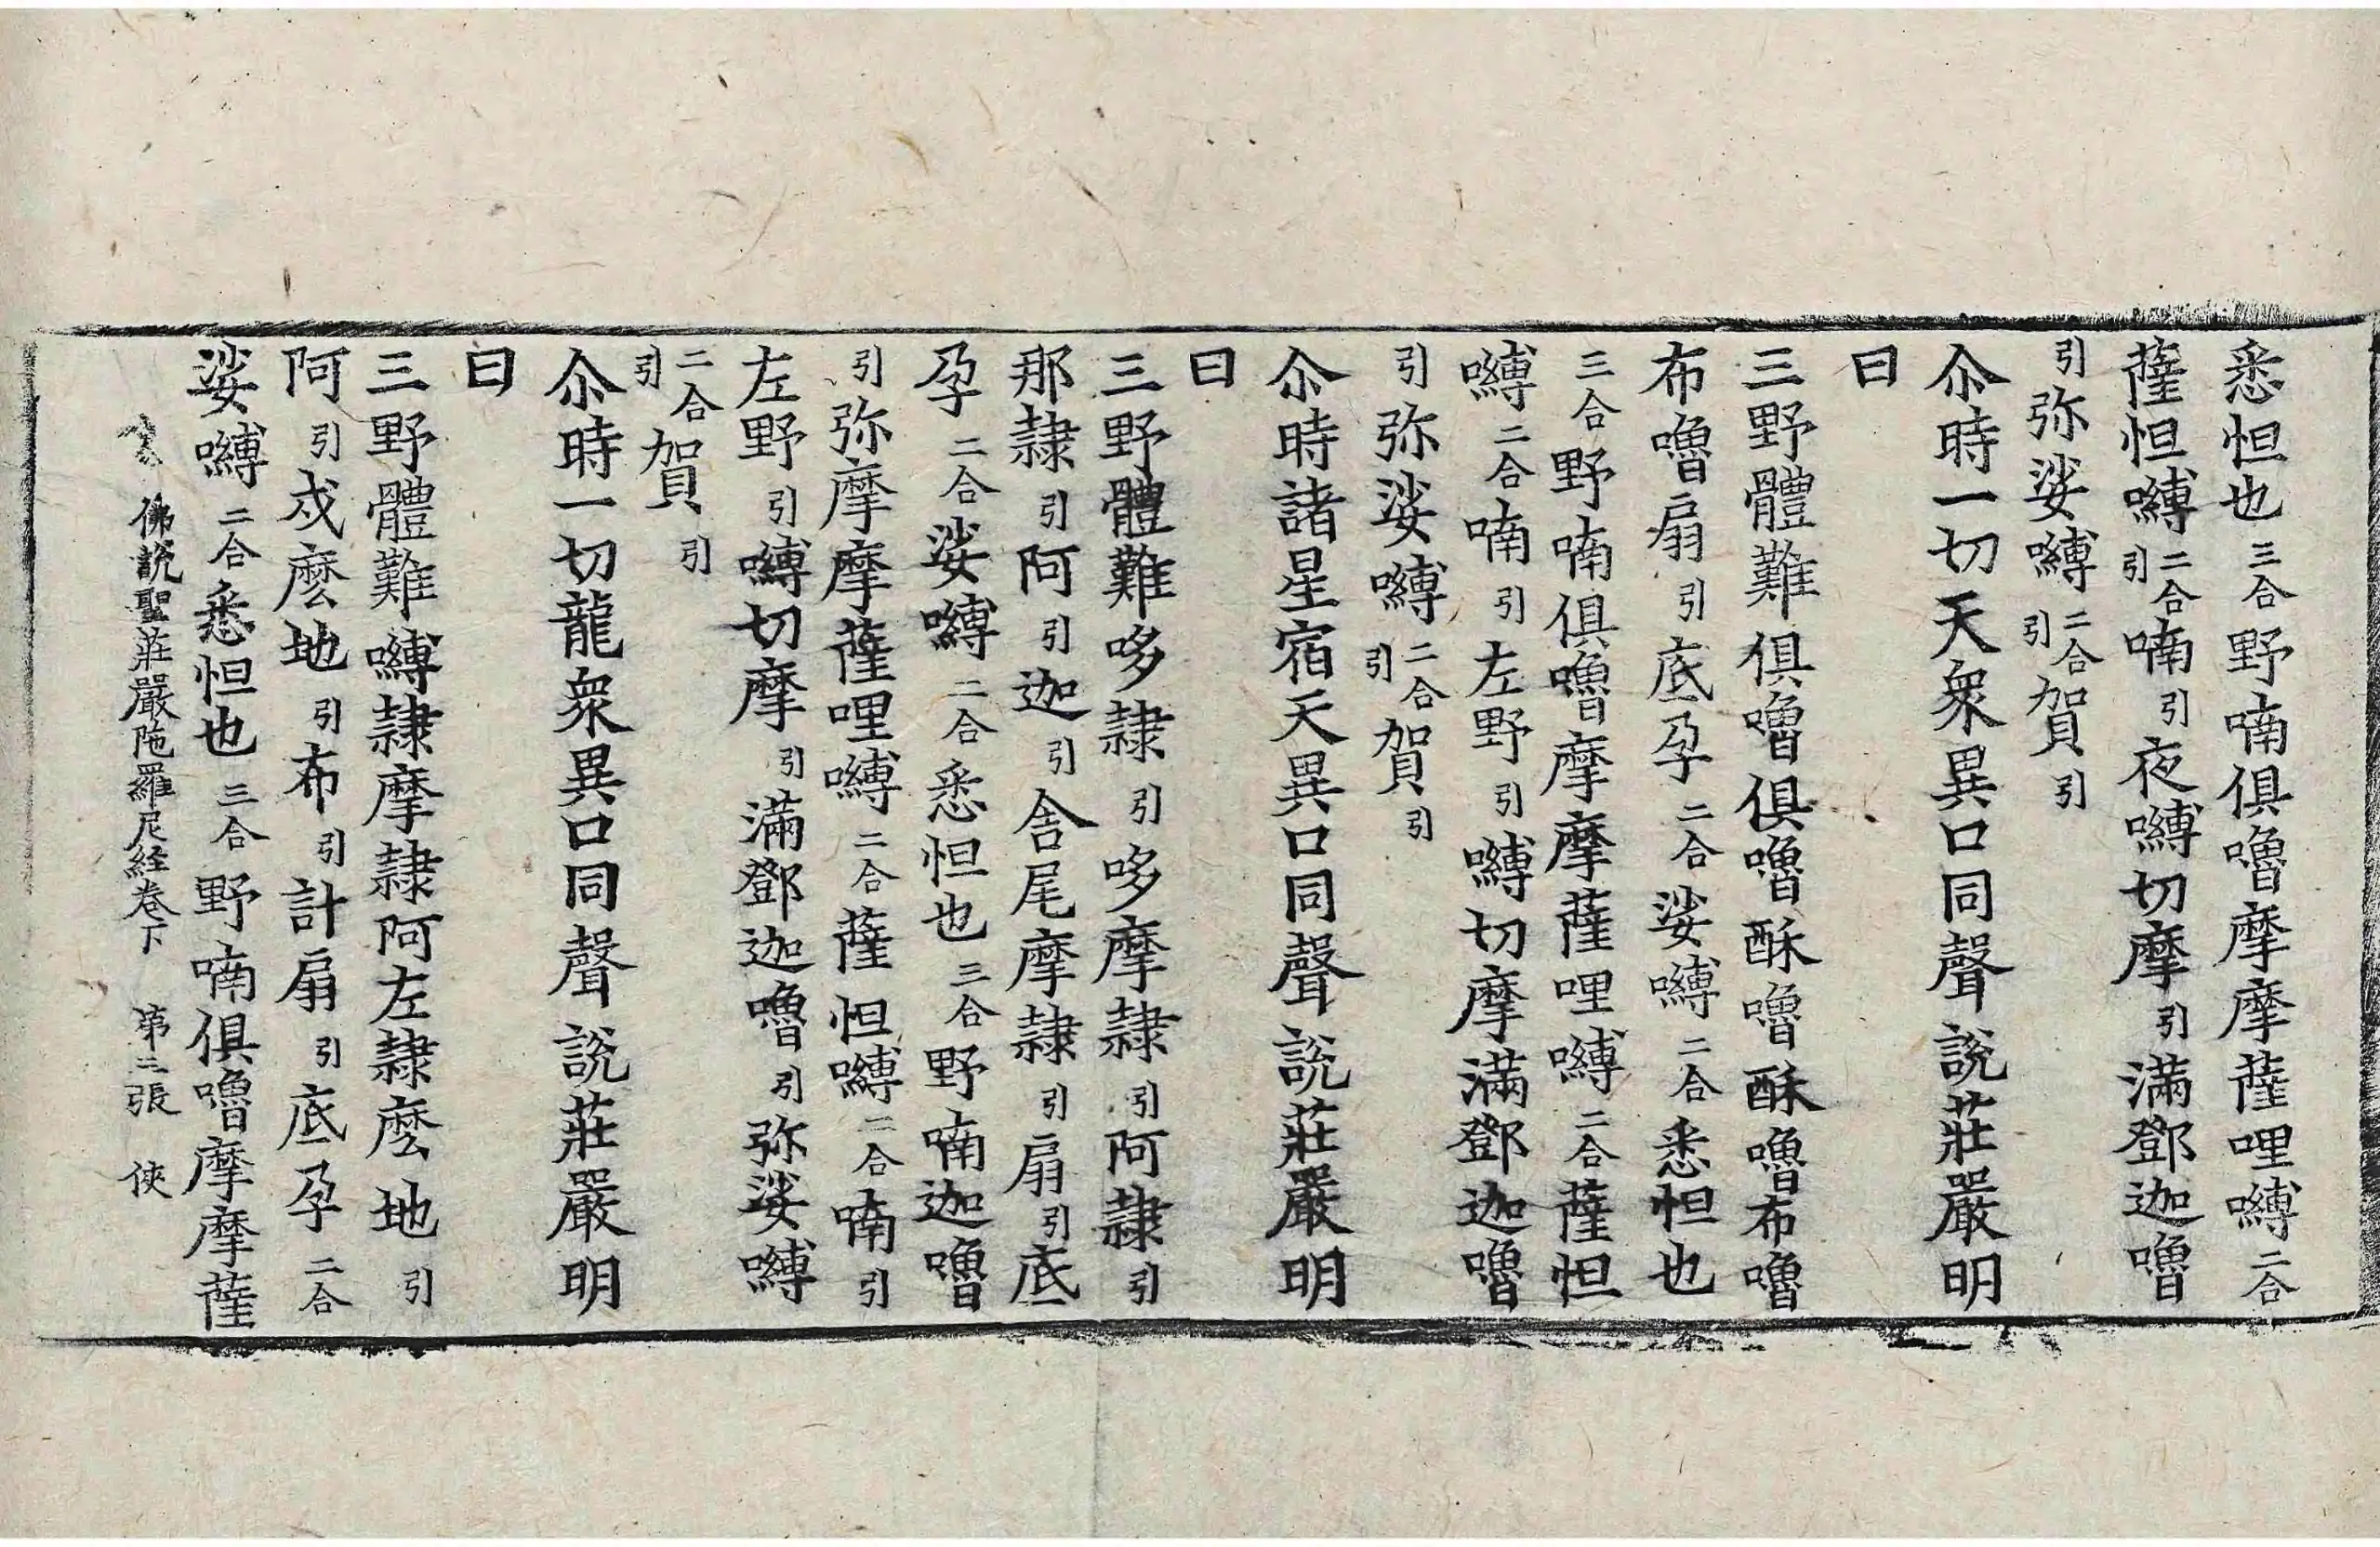 悉怛也三合野喃俱嚕摩摩薩哩嚩二合
薩怛嚩二合引喃引夜嚩切摩引滿鄧迦嚕
引弥娑嚩二合引賀引
尒時一切天衆異口同聲說莊嚴明
曰
三野體難俱嚕俱嚕酥嚕酥嚕布嚕
布嚕扇引底孕二合娑嚩二合悉怛也
三合野喃俱嚕摩摩薩哩嚩二合薩怛
嚩二合喃引左野引嚩切摩滿鄧迦嚕
引弥娑嚩二合引賀引
尒時諸星宿天異口同聲說莊嚴明
曰
三野體難哆隷引哆摩隷引阿隷引
那隷引阿引迦引舎尾摩隷引扇引底
孕二合娑嚩二合悉怛也三合野喃迦嚕
引弥摩摩薩哩嚩二合薩怛嚩二合喃引
左野引嚩切摩引滿鄧迦嚕引弥娑嚩
二合引賀引
尒時一切龍衆異口同聲說莊嚴明
曰
三野體難嚩隷摩隷阿左隷麽地引
阿引戍麽地引布引計扇引底孕二合
娑嚩二合悉怛也三合野喃俱嚕摩摩薩
佛說聖莊嚴陁羅尼經卷下 第三張 俠